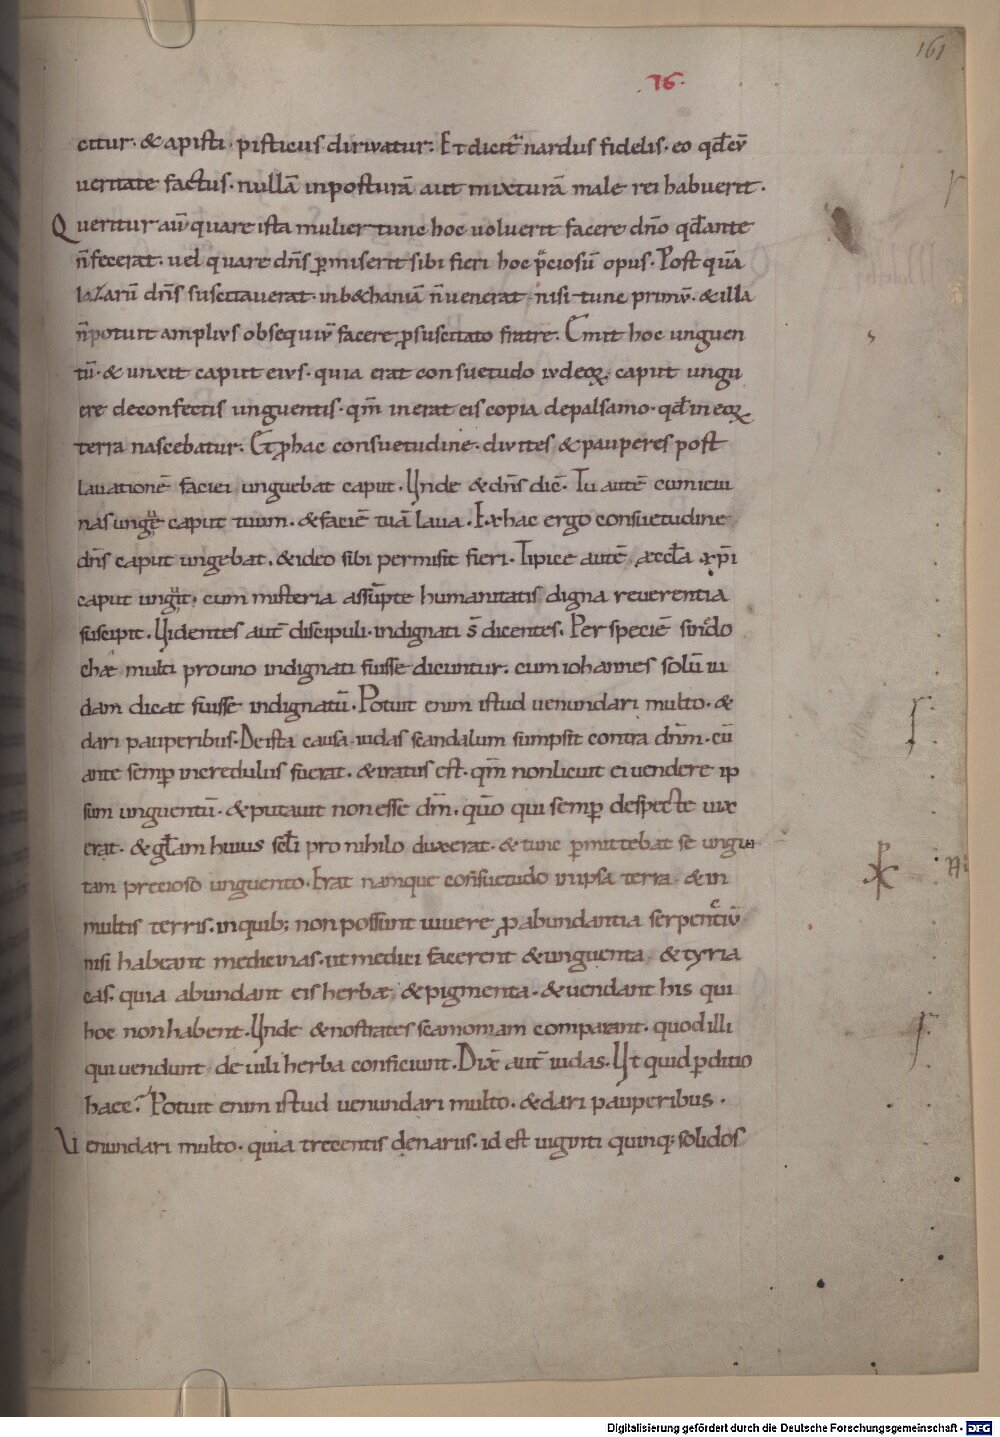 161
76.
citur· & apisti· pisticus dirivatur. Et dicit nardus fidelis· eo qđ ex
veritate factus· nullā inposturā aut mixturā male rei habuerit·
Queritur aūt quare ista mulier tunc hoc voluerit facere dn̄o qđ ante
n̄ fecerat· vel quare dn̄s p̱miserit sibi fieri hoc p̄ciosū opus· Post quā
lazarū dn̄s suscitaverat· in b&haniā n̄ venerat· nisi tunc primū· & illa
n̄ potuit amplius obsequiū facere ꝓ suscitato fratre· Emit hoc unguen
tū· & unxit caput eius· quia erat consuetudo iudeoꝝ· caput ungu
ere de confectis unguentis· qm̄ inerat eis copia de palsamo· qđ in eoꝝ
terra nascebatur. Et ꝓ hac consuetudine· divites & pauperes post
lavationē faciei unguebat caput· Unde & dn̄s dic̄· Tu autē cum ieiu
nas unge caput tuum· & faciē tuā lava· Ex hac ergo consuetudine
dn̄s caput ungebat· & ideo sibi permisit fieri· Tipice autē æccła xp̄i
caput ungit· cum misteria assūpte humanitatis digna reverentia
suscipit. Videntes aut̄ discipuli· indignati s̄ dicentes· Per speciē sindo
chæ multi pro uno indignati fuisse dicuntur· cum iohannes solū iu
dam dicat fuisse indignatū· Potuit enim istud venundari multo· &
dari pauperibus· De ista causa iudas scandalum sumpsit contra dn̄m· cū
ante semp̱ incredulus fuerat· & iratus est· qm̄ non licuit ei vendere ip
sum unguentū· & putavit non esse dm̄· quō qui semp̱ despecte vixe
erat· & głam huius scłi pro nihilo duxerat· & tunc p̱mittebat se ungui
tam precioso unguento· Erat namque consuetudo in ipsa terra· & in
multis terris· in quib; non possunt vivere ꝓ abundantia serpentiū
nisi habeant medicinas· ut medici facerent & unguenta & tyria
cas· quia abundant eis herbæ· & pigmenta· & vendant his qui
hoc non habent· Unde & nostrates scamoniam comparant· quod illi
qui vendunt de vili herba conficiunt. Dix̄ aut̄ iudas· Ut quid p̱ditio
haec? Potuit enim istud venundari multo· & dari pauperibus·
Venundari multo· quia trecentis denariis· id est viginti quinq; solidos
Digitalisierung gefördert durch die Deutsche Forschungsgemeinschaft - DFG